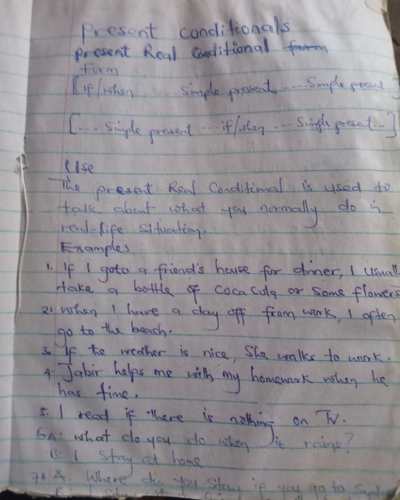 Present Conditionals
present Real Conditional form
Form
[if/when ..... Simple present .... Simple present
[.... Simple present ... if/when ... Simple present ..]
Use
The present Real Conditional is used to
talk about what you normally do in
real-life situation.
Examples
1. If I goto a friend's house for dinner, I usually
take a bottle of coca cola or some flowers
2. when I have a day off from work, I often
go to the beach.
3. If the weather is nice, She walks to work.
4. Jabir helps me with my homework when he
has time.
5. I read if there is nothing on Tv.
6A: what do you do when it rains?
B: I stay at home
7. A. Where do you stay if you go to